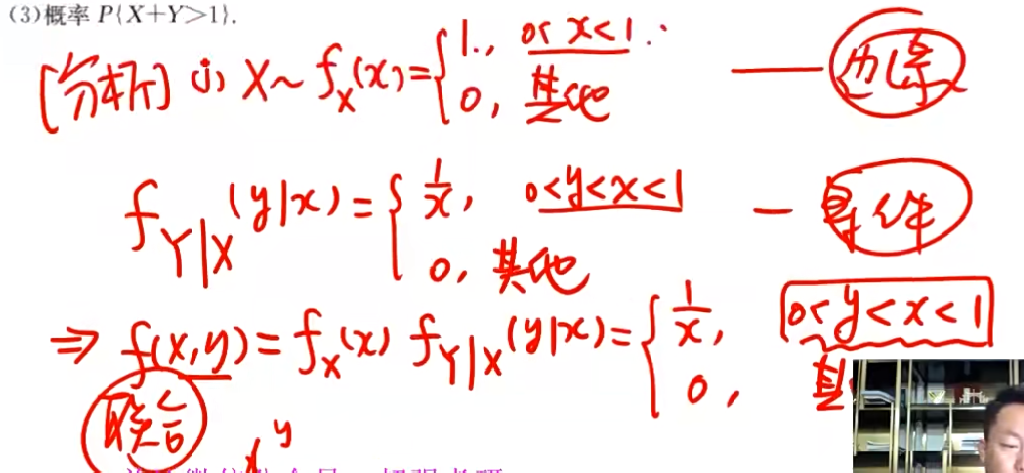 (3)概率 P{X+Y>1}.
[分析] (1) X~f_X(x)={1, 0<x<1. —— 边缘
0, 其他
f_{Y|X}(y|x)={1/x, 0<y<x<1 — 条件
0, 其他
⇒ f(x,y)=f_X(x) f_{Y|X}(y|x)={1/x, 0<y<x<1
0,
联合
y